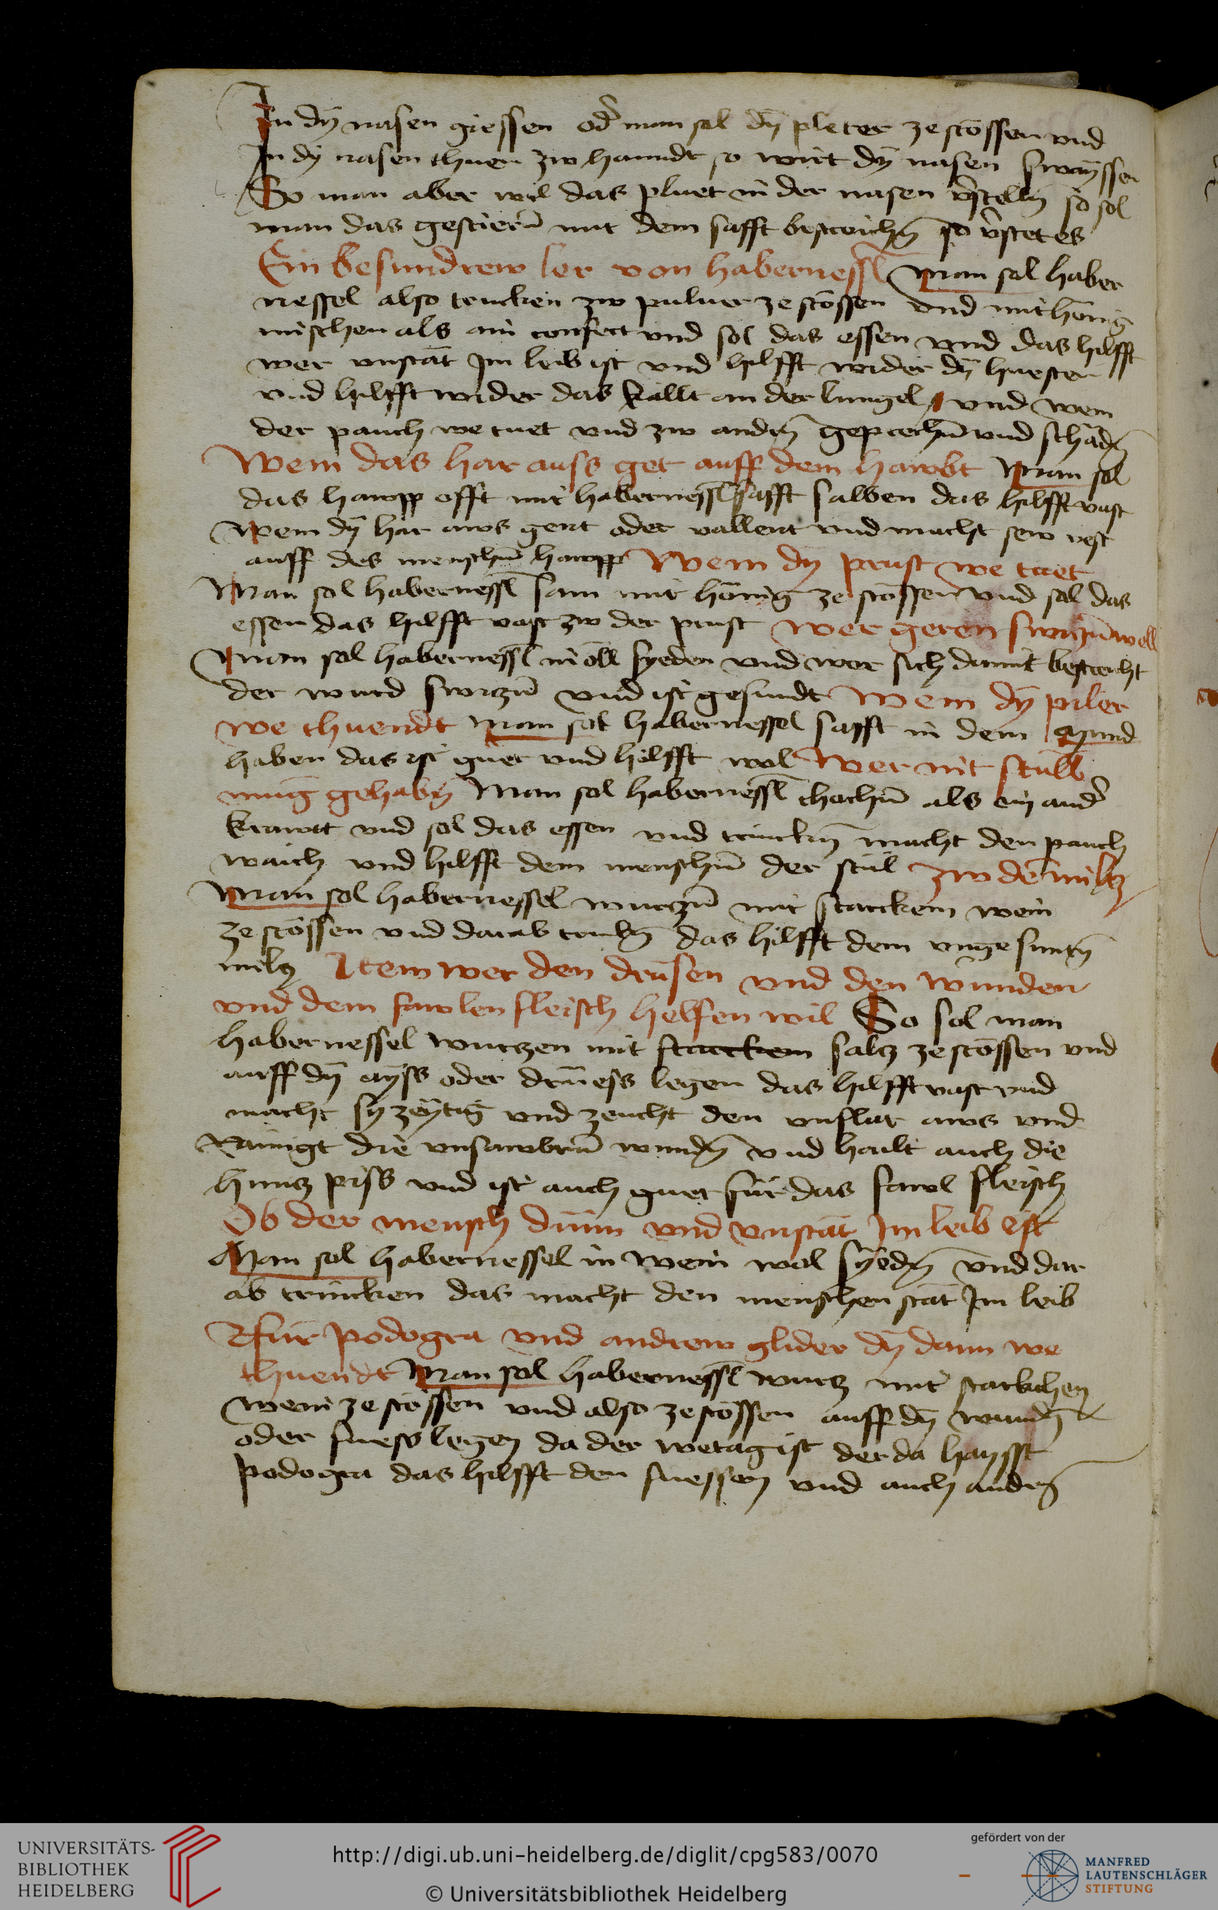 In dÿ nasen giessen od' man sol dÿ pleter ze stossen vnd
In dÿ nasen thuen zw hanndt so wirt dÿ nasen swayssen
So man aber wil das pluet in der nasen v'stellñ so sol
man das gestierñ mit dem safft bestreichñ so v'stet es
Ein besundrew ler von habernessl Man sol haber
nessel also trucken zw puluer ze stossen vnd mit hönig
mischen als ain confect vnd sol das essen vnd das hilfft
wer vnstät Im leib ist vnd hilfft wider dÿ huesten
vnd hilfft wider das kallt an der lungel vnd wem
der pauch we tuet vnd zw andrñ geprechñ vnd schadñ
Wem das har auss get auff dem hawbt Man sol
das hawpp offt mit habernessl safft salben das hilfft vast
Wem dÿ har aws gent oder vallent vnd macht sew vest
auff des menschñ hawpp Wem dÿ prust we tuet
Man sol habernessl sam mit hönig ze stossen vnd sol das
essen das hilfft vast zw der prust Wer geren switzñ well
Man sol habernessl in öll syeden vnd wer sich damit bestreicht
der wird switzñ vnd ist gesundt Wem dÿ piler
we thuendt Man sol habernessel safft in dem Mund
haben das ist guet vnd hilfft wol Wer nit stull
mug gehabñ Man sol habernessl chochñ als ein and'
krawtt vnd sol das essen vnd trinckñ macht den pauch
waich vnd hilfft dem menschñ der stül Zw dem miltz
Man sol habernessel wurczñ mit starckem wein
ze stossen vnd darab trinckñ das hilfft dem vngesuntñ
miltz Item wer den drüsen vnd den wunden
vnd dem fawlen fleisch helfen wil So sol man
habernessel wurczen mit starckem salcz ze stossen vnd
auff dÿ ayss oder drüess legen das hilfft vast vnd
macht sy zeytig vnd zeucht den vnflat aws vnd
Rainigt die vnsawbrñ wundñ vnd hailt auch die
huncz piss vnd ist auch guet für das fawl fleisch
Ob der mensch dünn vnd vnstät Im leib est
Man sol habernessel in wein wol syedñ vnd dar
ab trincken das macht den menschen stät Im leib
Für podogra vnd andrew glider dÿ dann we
thuendt Man sol habernessl wurcz mit starkchen
wein ze stossen vnd also ze stossen auff dÿ wundñ
oder fuess legen da der wetag ist der da haysst
podogra das hilfft den fuessen vnd auch andrñ
UNIVERSITÄTS-
BIBLIOTHEK
HEIDELBERG
http://digi.ub.uni-heidelberg.de/diglit/cpg583/0070
© Universitätsbibliothek Heidelberg
gefördert von der
MANFRED
LAUTENSCHLÄGER
STIFTUNG